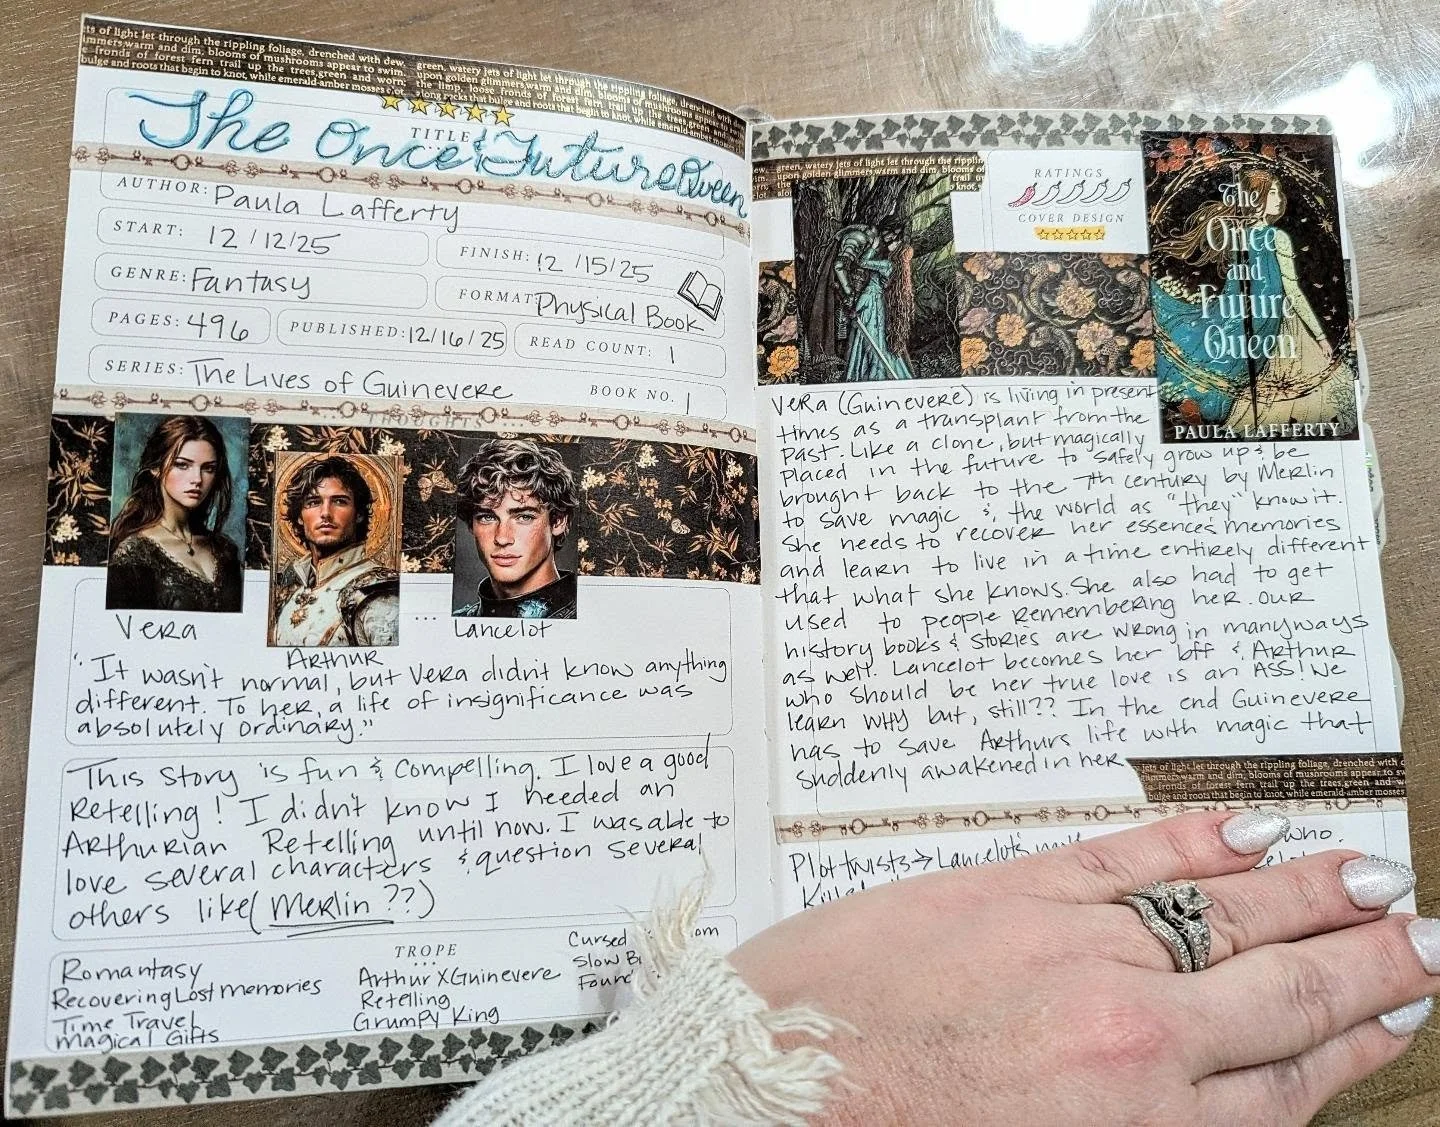 ets of light let through the rippling foliage, drenched with dew,
immers,warm and dim, blooms of mushrooms appear to swim.
e fronds of forest fern trail up the trees,green and worn:
bulge and roots that begin to knot, while emerald-amber mosses clot
green, watery jets of light let through the rippling foliage, drenched
upon golden glimmers,warm and dim, blooms of mushrooms appear
the limp, loose fronds of forest fern trail up the trees,green and
along rocks that bulge and roots that begin to knot, while emerald-amber mosses
TITLE
The Once & Future Queen
AUTHOR: Paula Lafferty
START: 12/12/25
FINISH: 12/15/25
GENRE: Fantasy
FORMAT: Physical Book
PAGES: 496
PUBLISHED: 12/16/25
READ COUNT: 1
SERIES: The Lives of Guinevere
BOOK NO. 1
THOUGHTS
Vera
Arthur
Lancelot
"It wasn't normal, but Vera didn't know anything
different. To her, a life of insignificance was
absolutely ordinary."
This story is fun & compelling. I love a good
Retelling! I didn't know I needed an
Arthurian Retelling until now. I was able to
love several characters & question several
others like (Merlin??)
TROPE
Romantasy
Recovering Lost memories
Time Travel
Magical Gifts
Arthur X Guinevere
Retelling
Grumpy King
Cursed
Slow
green, watery jets of light let through the ripplin
upon golden glimmers,warm and dim, blooms of
RATINGS
COVER DESIGN
The
Once
and
Future
Queen
PAULA LAFFERTY
Vera (Guinevere) is living in present
times as a transplant from the
past. Like a clone, but magically
placed in the future to safely grow up & be
brought back to the 7th century by Merlin
to save magic & the world as "they" know it.
She needs to recover her essences memories
and learn to live in a time entirely different
that what she knows. She also had to get
used to people remembering her. Our
history books & stories are wrong in many ways
as well. Lancelot becomes her bff & Arthur
who should be her true love is an ASS! We
learn WHY but, still?? In the end Guinevere
has to save Arthurs life with magic that
suddenly awakened in her
jets of light let through the rippling foliage, drenched with
glimmers,warm and dim, blooms of mushrooms appear to sw
fronds of forest fern trail up the trees,green and w
bulge and roots that begin to knot, while emerald-amber mosses
Plot twists → Lancelot's
who